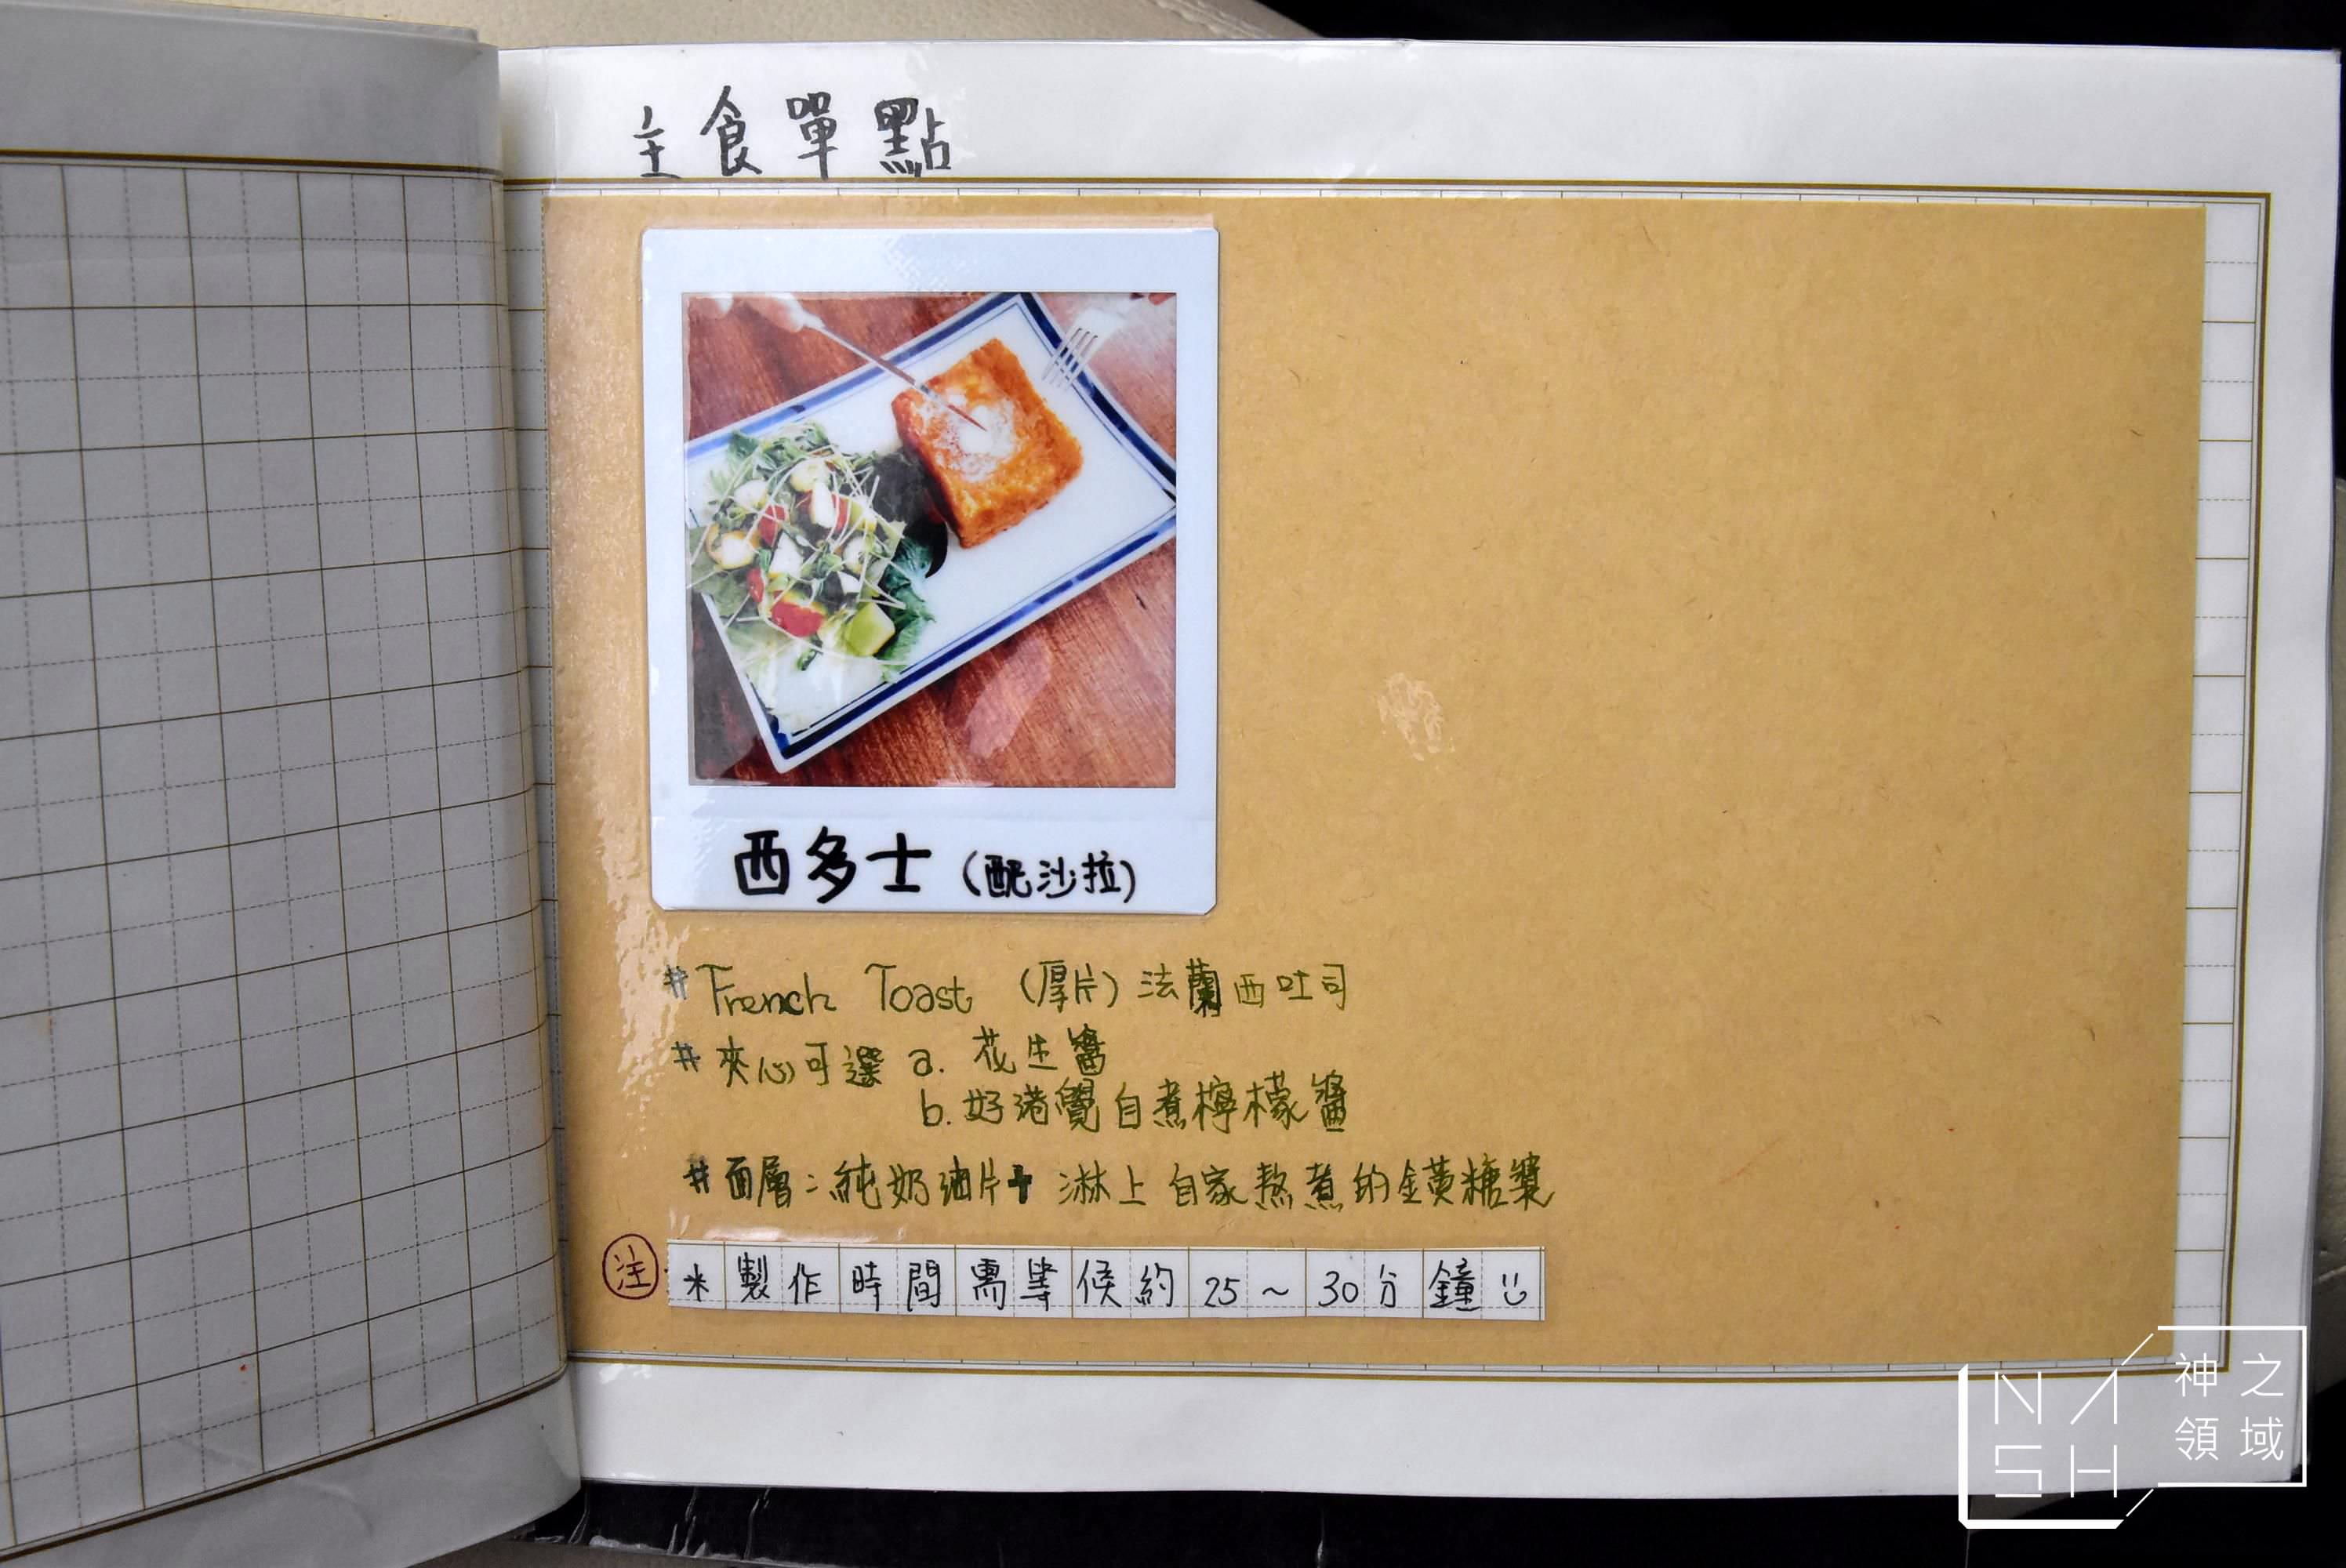 主食單點
西多士 (配沙拉)
# French Toast (厚片) 法蘭西吐司
# 夾心可選 a. 花生醬
b. 好港覺自煮檸檬醬
# 面層：純奶油片+ 淋上自家熬煮的黃糖漿
注 * 製作時間需等候約 25 ~ 30 分鐘
NASH
神之
領域